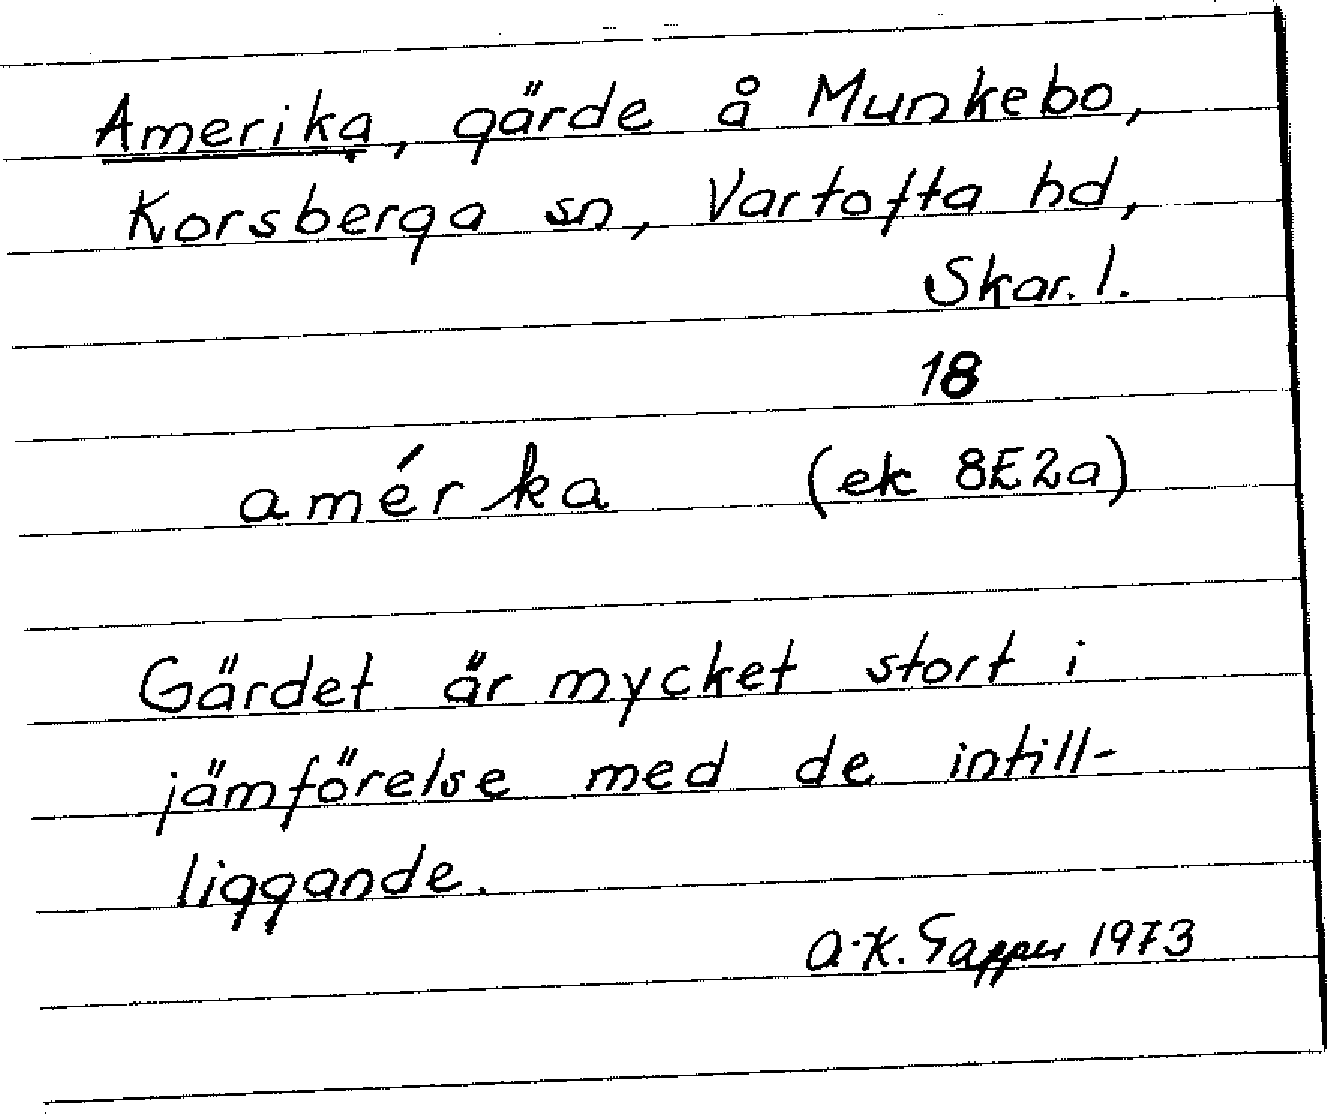 Amerika, gärde å Munkebo,
Korsberga sn, Vartofta hd,
Skar. l.
18
amérka (ek 8E2a)
Gärdet är mycket stort i
jämförelse med de intill-
liggande.
A-K. 1973